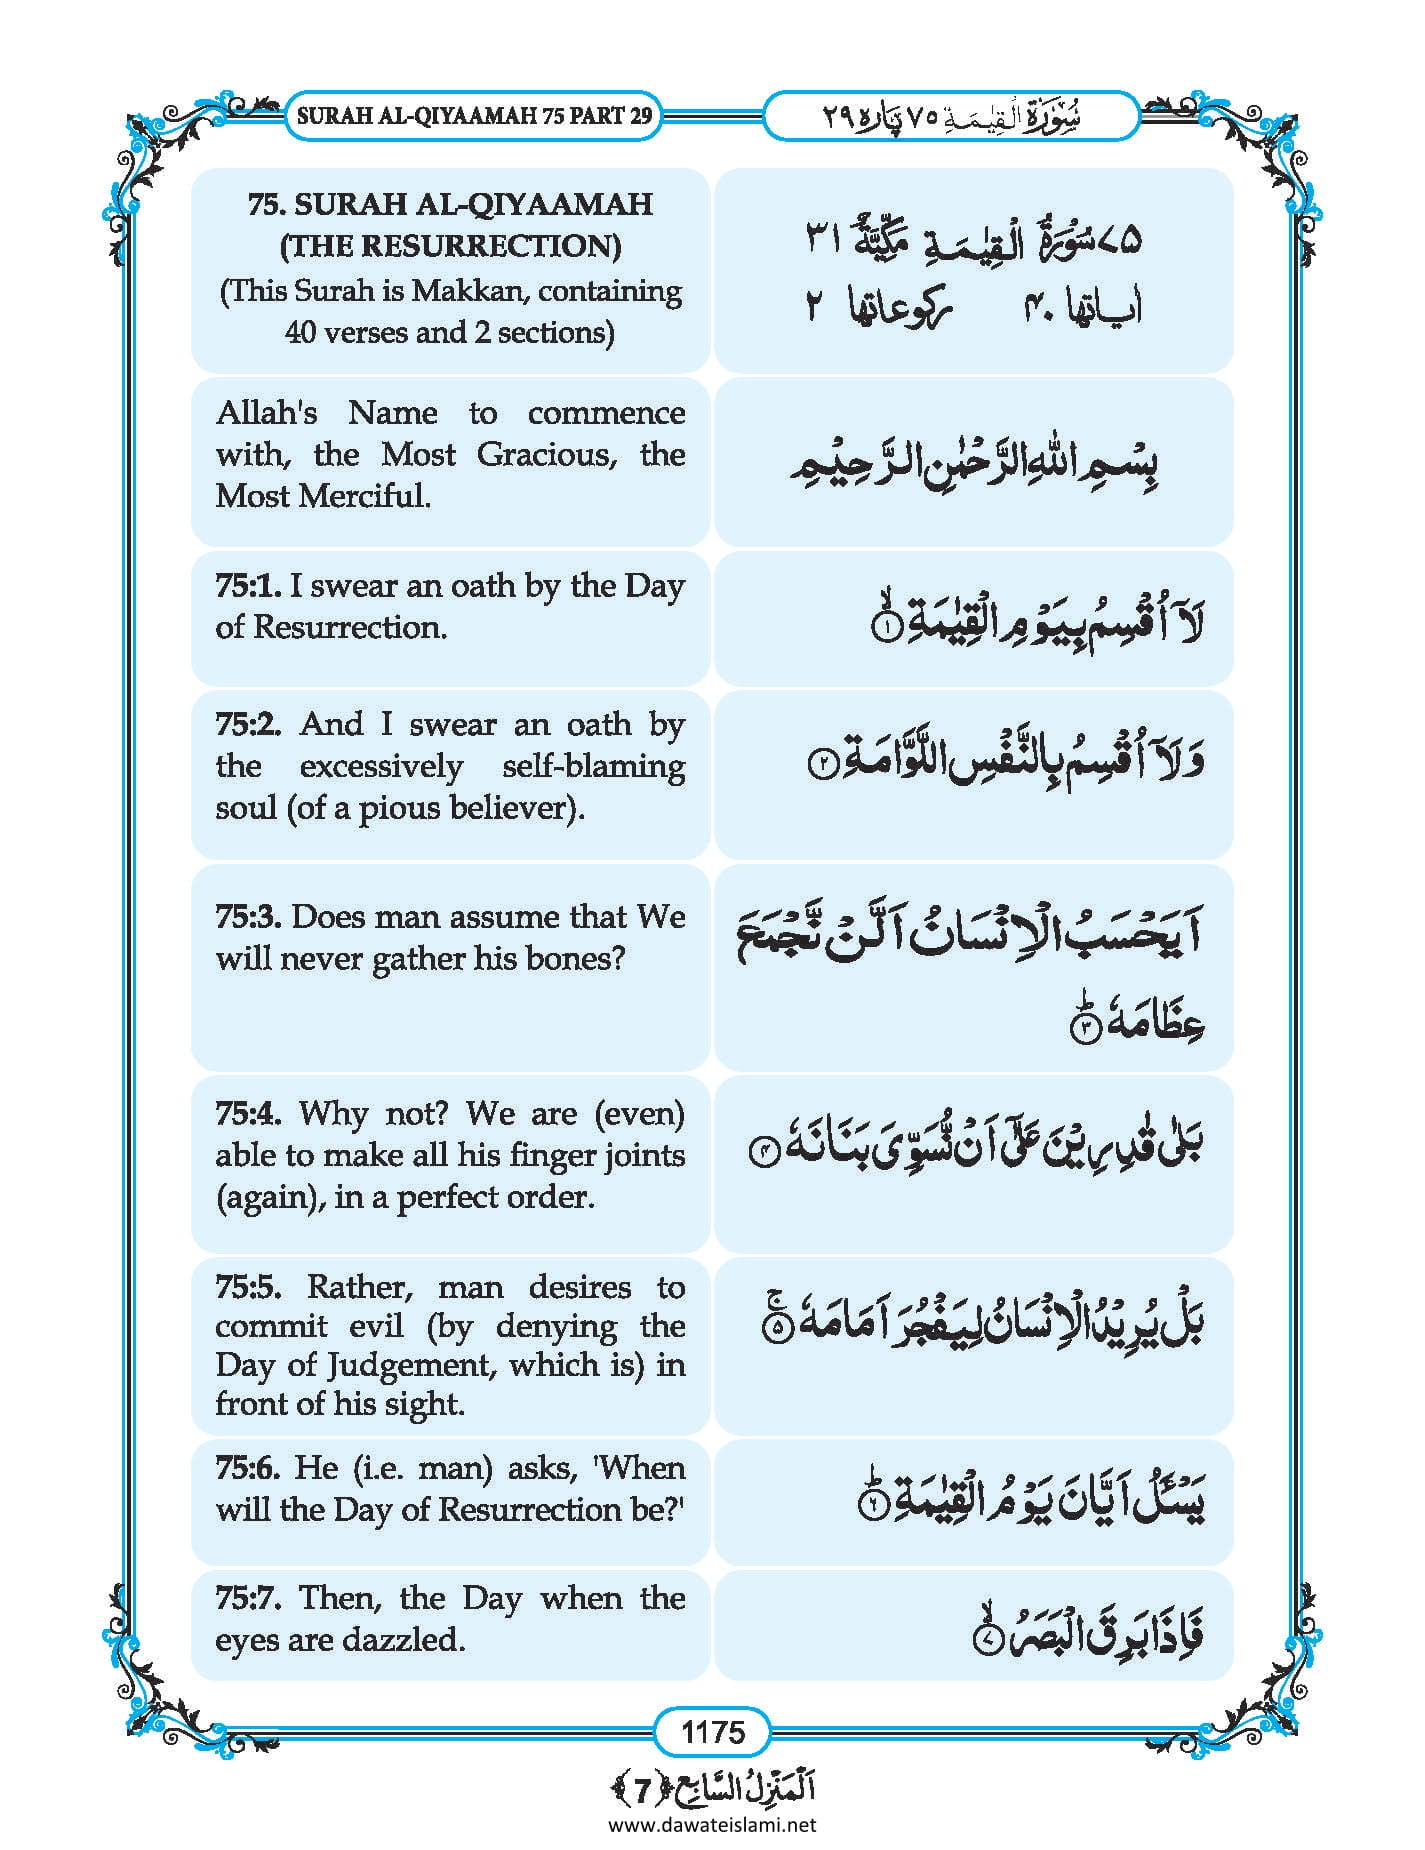 SURAH AL-QIYAAMAH 75 PART 29
سُوْرَةُ الْقِيٰمَةِ ٧٥ پاره ٢٩
75. SURAH AL-QIYAAMAH
(THE RESURRECTION)
(This Surah is Makkan, containing
40 verses and 2 sections)
٧٥ سُوْرَةُ الْقِيٰمَةِ مَكِّيَّةٌ ٣١
اٰیاتها ۴۰ ركوعاتها ٢
Allah's Name to commence
with, the Most Gracious, the
Most Merciful.
بِسْمِ اللّٰهِ الرَّحْمٰنِ الرَّحِيْمِ
75:1. I swear an oath by the Day
of Resurrection.
لَاۤ اُقْسِمُ بِيَوْمِ الْقِيٰمَةِۙ ۱
75:2. And I swear an oath by
the excessively self-blaming
soul (of a pious believer).
وَ لَاۤ اُقْسِمُ بِالنَّفْسِ اللَّوَّامَةِ ۲
75:3. Does man assume that We
will never gather his bones?
اَيَحْسَبُ الْاِنْسَانُ اَلَّنْ نَّجْمَعَ
عِظَامَهٗؕ ۳
75:4. Why not? We are (even)
able to make all his finger joints
(again), in a perfect order.
بَلٰى قٰدِرِيْنَ عَلٰۤى اَنْ نُّسَوِّىَ بَنَانَهٗ ۴
75:5. Rather, man desires to
commit evil (by denying the
Day of Judgement, which is) in
front of his sight.
بَلْ يُرِيْدُ الْاِنْسَانُ لِيَفْجُرَ اَمَامَهٗۚ ۵
75:6. He (i.e. man) asks, 'When
will the Day of Resurrection be?'
يَسْـَٔلُ اَيَّانَ يَوْمُ الْقِيٰمَةِؕ ۶
75:7. Then, the Day when the
eyes are dazzled.
فَاِذَا بَرِقَ الْبَصَرُۙ ۷
1175
اَلْمَنْزِلُ السَّابِع ﴿7﴾
www.dawateislami.net